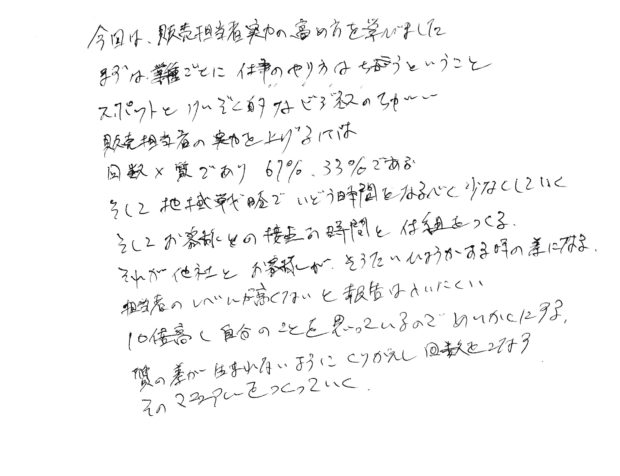 今回は、販売担当者実力の高め方を学びました
まずは業種ごとに仕事のやり方はちがうということ
スポットとけいぞく的なビジネスのちがい
販売担当者の実力を上げるには
回数×質であり 67%、33%である
そして地域戦略でいどう時間をなるべく少なくしていく
そしてお客様との接点の時間と仕組をつくる。
それが他社とお客様が、そうたいひょうかする時の差になる。
担当者のレベルが高くないと報告はいいにくい
10倍高く自分のことを思っているのでめいかくにする。
質の差が生まれないようにくりかえし回数をこなす
そのマニュアルをつくっていく。